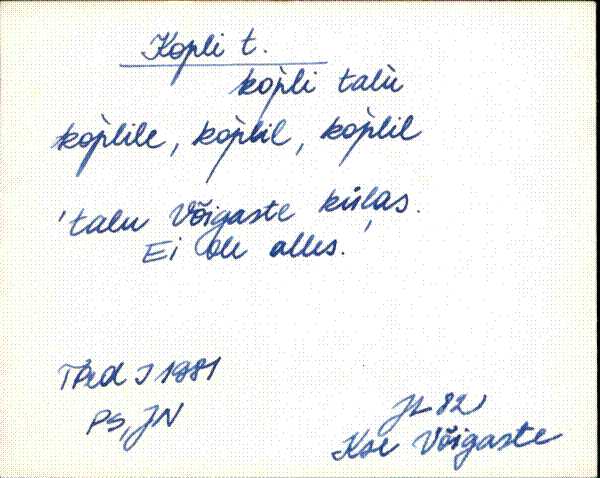 Kopli t.
kop̀li talu
kop̀lile, kop̀lil, kop̀lil
'talu Võigaste külas.
Ei ole alles.'
TPed I 1981
PS, JN
JL 82
Kse Võigaste